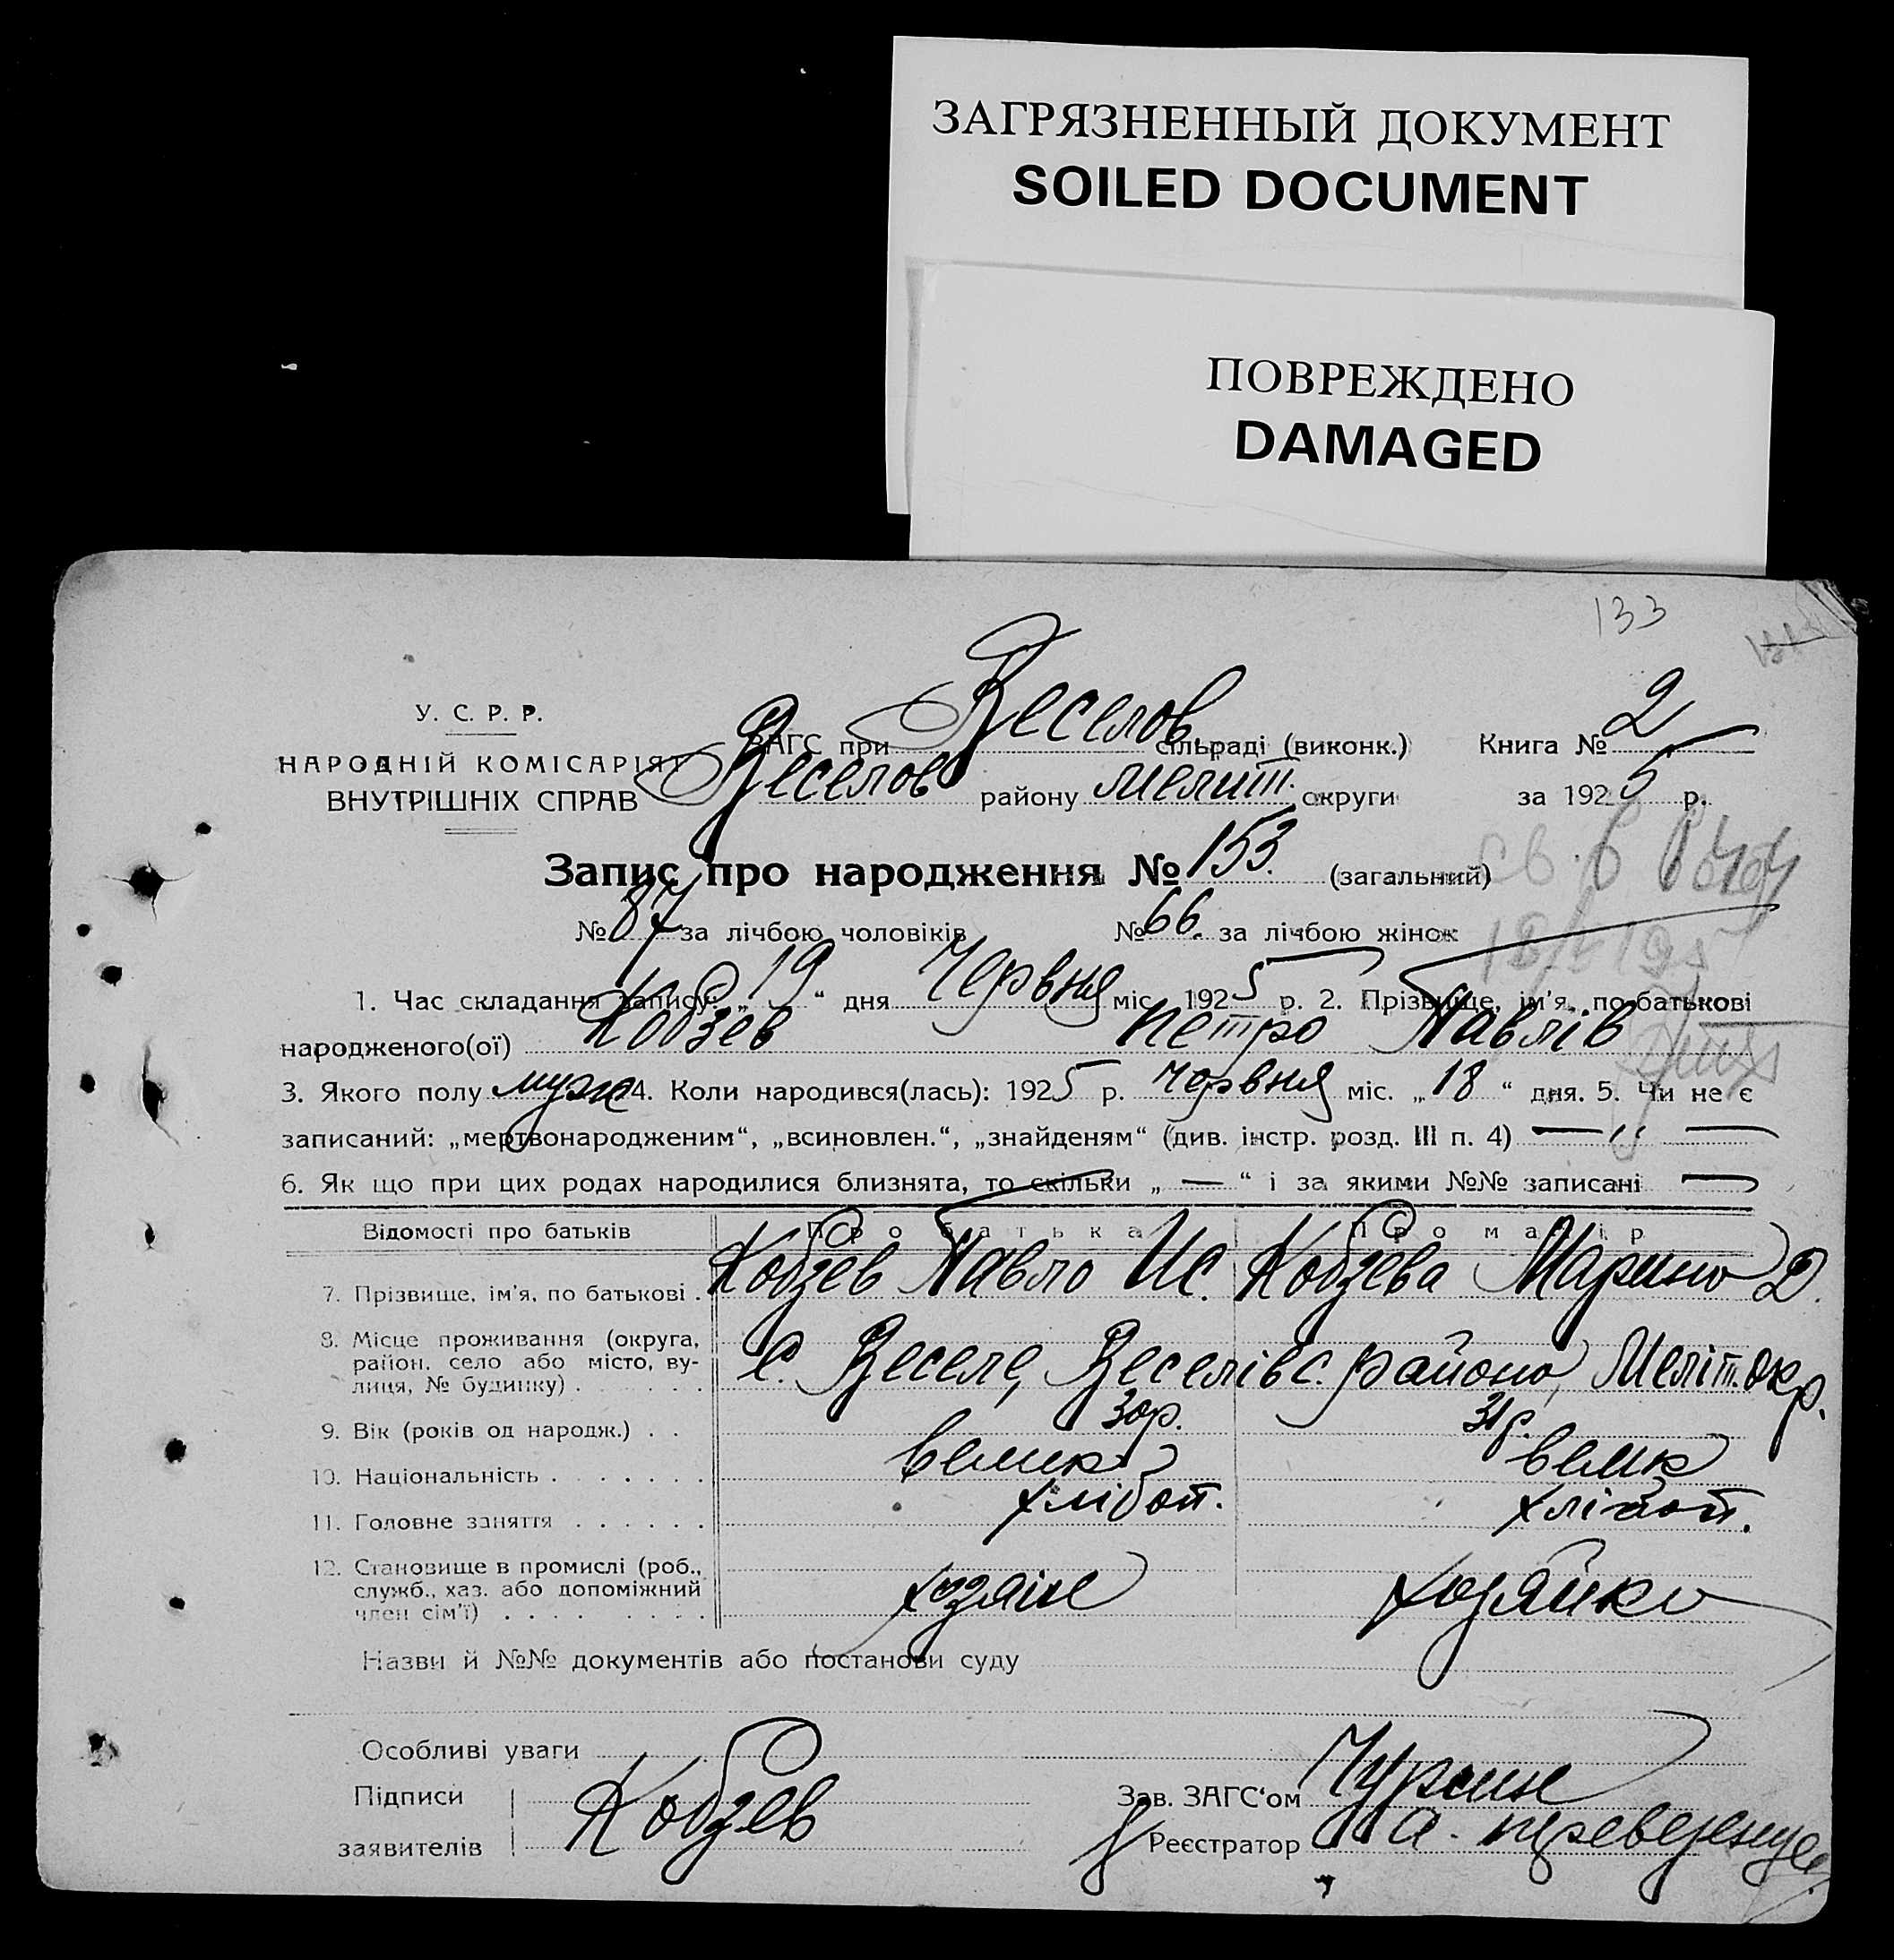 ЗАГРЯЗНЕННЫЙ ДОКУМЕНТ
SOILED DOCUMENT
ПОВРЕЖДЕНО
DAMAGED
133
У. С. Р. Р.
НАРОДНІЙ КОМІСАРІЯТ
ВНУТРІШНІХ СПРАВ
ЗАГС при Веселов сільраді (виконк.) Книга № 2
Веселов району Мелит. округи за 1925 р.
Запис про народження № 153. (загальний)
№ 87 за лічбою чоловіків № 66. за лічбою жінок
1. Час складання запису: „19“ дня Червня міс. 1925 р. 2. Прізвище, ім'я, по-батькові
народженого(ої) Кобзев Петро Павлів
3. Якого полу муж 4. Коли народився(лась): 1925 р. Червня міс. „18“ дня. 5. Чи не є
записаний: „мертвонародженим“, „всиновлен.“, „знайденям“ (див. інстр. розд. III п. 4) — „ —
6. Як що при цих родах народилися близнята, то скільки „—“ і за якими №№ записані —
Відомості про батьків Про батька Про матір
7. Прізвище, ім'я, по батькові . Кобзев Павло Ис. Кобзева Марина Д.
8. Місце проживання (округа,
район, село або місто, ву-
лиця, № будинку) . . . . . . С. Веселе, Веселівс. району, Меліт. окр.
9. Вік (років од народж.) . . 30р. 31р.
10. Національність . . . . . . . велик велик
11. Головне заняття . . . . . . хлібоп. хлібоп.
12. Становище в промислі (роб.,
служб., хаз. або допоміжний
член сім'ї) . . . . . . . . хозяін хозяйка
Назви й №№ документів або постанови суду
Особливі уваги
Підписи
заявителів Кобзев
Зав. ЗАГС‘ом
Реєстратор